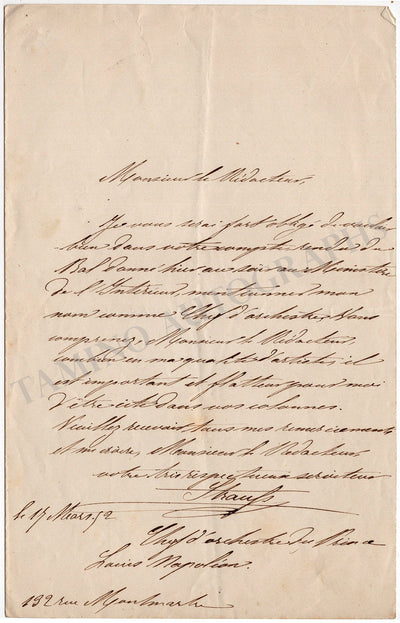 Monsieur le Rédacteur,
Je vous serai fort obligé de vouloir
bien dans votre compte rendu du
Bal donné hier au soir au Ministère
de l'Intérieur, mentionner mon
nom comme Chef d'orchestre, Vous
comprenez Monsieur le Rédacteur
combien en ma qualité d'artiste, il
est important et flatteur pour moi
d'être cité dans vos colonnes.
Veuillez recevoir tous mes remerciements
et me croire, Monsieur le Rédacteur
votre très respectueux serviteur
Strauss
le 17 Mars 52
Chef d'orchestre du Prince
Louis Napoléon.
192 rue Montmartre
TAMINO AUTOGRAPHS